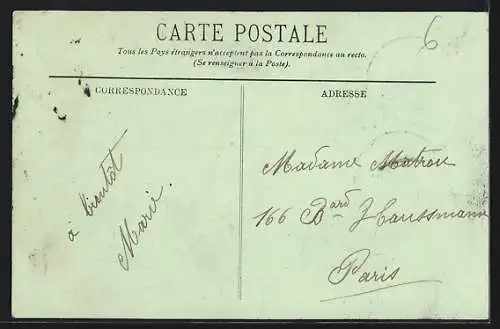 CARTE POSTALE
Tous les Pays étrangers n'acceptent pas la Correspondance au recto.
(Se renseigner à la Poste).
6
CORRESPONDANCE
ADRESSE
à bientot
Marie.
Madame
166 Bard Haussmann
Paris